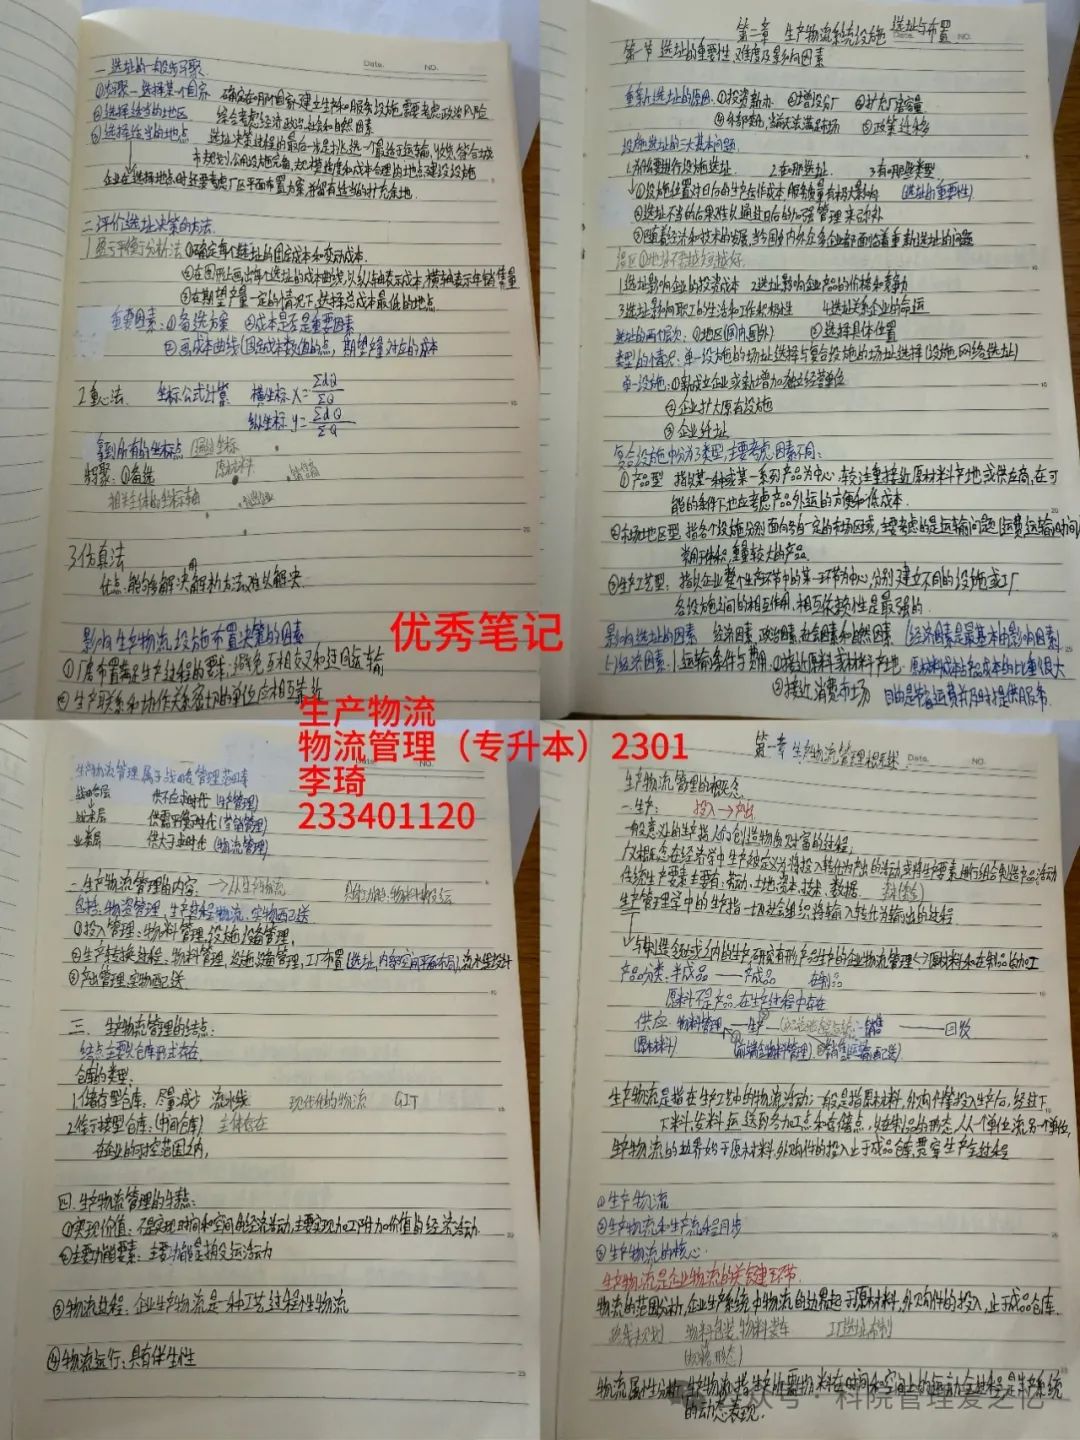 一.选址的一般步骤
Date. NO.
①步骤一选择某个国家 确定在哪个国家建立生产和服务设施,需要考虑政治风险
②选择适当的地区 综合考虑经济政治,社会和自然因素
③选择适当的地点 选址决策过程的最后一步是
企业在选择地点时还要考虑厂区平面布置方案,并留有适当的扩充余地.
二.评价选址决策的方法
1.盈亏平衡分析法 ①确定每个选址的固定成本和变动成本.
②在图形上画出每个选址的成本曲线,以纵轴表示成本,横轴表示年销售量
③在期望产量一定的情况下,选择总成本最低的地点.
重要因素:①备选方案 ②成本是否是重要因素
③画成本曲线(固定成本数值的点,期望产量对应的成本
2.重心法. 坐标公式计算 横坐标 X=ΣdQ/ΣQ
纵坐标 y=ΣdQ/ΣQ
拿到所有的坐标点
步骤:①备选 原材料
3.仿真法
优点:能够解决解析方法难以解决
影响生产物流设施布置决策的因素
①厂房布置满足生产过程的要求,避免互相交叉和迂回运输
②生产联系和协作关系密切的单位应相互靠近
第二章 生产物流系统设施选址与布置
Date. NO.
第一节 选址的重要性,难度及影响因素
重新选址的原因:①投资新办 ②增设分厂 ③扩充厂容量
⑤政策迁移
设施选址的三大基本问题.
1.为何要进行设施选址 2.在哪选址. 3.有哪些类型
①设施位置对日后的生产运作成本,服务质量有极大影响 (选址的重要性)
②选址不当的后果难以通过日后的加强管理来弥补
③随着经济和技术的发展,当今国内外众多企业都面临着重新选址的问题
1.选址影响企业的投资成本 2.选址影响企业产品的价格和竞争力
3.选址影响职工的生活和工作积极性 4.选址关系企业的命运
选址的两个层次:①地区(国内国外) ②选择具体位置
类型的情况:单一设施的场址选择与复合设施的场址选择(设施网络选址)
单一设施:①新成立企业或新增加独立经营单位
②企业扩大原有设施
③企业迁址
复合设施中分为3类型,主要考虑因素不同:
①产品型 指以某一种或某一系列产品为中心,较注重接近原材料产地或供应商,在可
能的条件下也应考虑产品外运的方便和低成本.
②市场地区型.指各个设施分别面向各自一定的市场区域,主要考虑的是运输问题(运费运输时间)
常用于体积,重量较大的产品
③生产工艺型:指以企业整个生产环节中的某一环节为中心,分别建立不同的设施或工厂
各设施之间的相互作用.相互依赖性是最强的.
影响选址的因素 经济因素,政治因素,社会因素和自然因素 (经济因素是最基本的影响因素)
(一)经济因素:1.运输条件与费用:①接近原料或材料产地.原材料成本占产品成本的比重很大
②接近消费市场 目的是节省运费并及时提供服务.
优秀笔记
生产物流
物流管理（专升本）2301
李琦
233401120
Date. NO.
生产物流管理属于战略管理范畴
战略层 供不应求时代(生产管理)
战术层 供需平衡时代(营销管理)
业务层 供大于求时代(物流管理)
二.生产物流管理的内容: →从生产物流
包括:物资管理,生产过程物流,实物配送
①投入管理:物料管理,设施设备管理,
②生产转换过程,物料管理,设施设备管理,工厂布置(选址,内部空间平面布局),流水型设计
③产出管理,实物配送
三. 生产物流管理的结点:
结点主要以仓库形式存在.
仓库的类型:
1.储存型仓库:尽量减少 流水线 现代化的物流 GIT
2.衔接型仓库:(中间仓库) 主体存在
在企业的可控范围之内,
四.生产物流管理的特点:
①实现价值:不是实现时间和空间的经济活动,主要实现加工附加价值的经济活动.
②主要功能要素:主要功能是搬运活动
③物流过程:企业生产物流是一种工艺过程性物流
④物流运行:具有伴生性
第一章 生产物流管理概述
Date. NO.
生产物流管理的概念
一.生产: 投入→产出
一般意义上的生产指人们创造物质财富的过程,
传统生产要素主要有:劳动.土地.资本.技术.数据.
生产管理学中的生产指一切社会组织将输入转化为输出的过程
产品分类:半成品 —— 产成品 在制品
原料不是产品,在生产过程中存在
供应 物料管理 生产 销售 —— 回收
(原材料)
生产物流是指在生产工艺中的物流活动:一般是指原材料,外购件等投入生产后,经过下
下料,发料,运送到各加工点和存储点,以在制品的形态,从一个单位流另一个单位,
生产物流的边界始于原材料,外购件的投入止于成品仓库,贯穿生产全过程
①生产物流
②生产物流和生产流程同步
③生产物流的核心.
生产物流是企业物流的关键环节.
物流的范围分析,企业生产系统中物流的边界起于原材料,外购件的投入,止于成品仓库.
路线规划 物料包装,物料装车
物流属性分析 生产物流指生产所需物料在时间和空间上的运动全过程是生产系统
的动态表现.
公众号·科院管理爱之忆